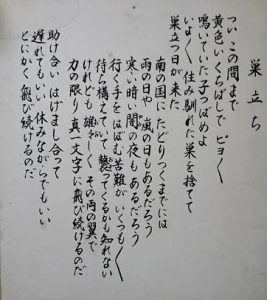 巣立ち
つい この間まで
黄色いくちばしで ピヨ〱
鳴いていた子つばめよ
いよ〱 住み馴れた巣を捨てて
巣立つ日が来た
南の国に たどりつくまでには
雨の日や 嵐の日もあるだろう
寒い暗い闇の夜もあるだろう
行く手をはばむ苦難が いくつも〱
待ち構えていて 襲ってくるかも知れない
けれども 雄々しく その両の翼で
力の限り 真一文字に飛び続けるのだ
助け合い はげまし合って
遅れてもいい 休みながらでもいい
とにかく 飛び続けるのだ